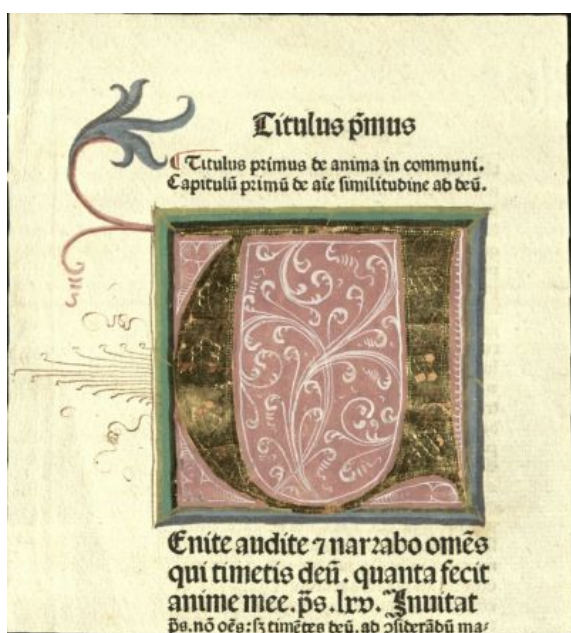 Titulus p̄mus
¶ Titulus primus de anima in communi.
Capitulū primū de aīe similitudine ad deū.
U
Enite audite ⁊ narꝛabo omēs
qui timetis deū. quanta fecit
anime mee. p̄s. lxv. Inuitat
p̄s. nō oēs: sꝫ timētes deū. ad ↄsiderādū ma⸗